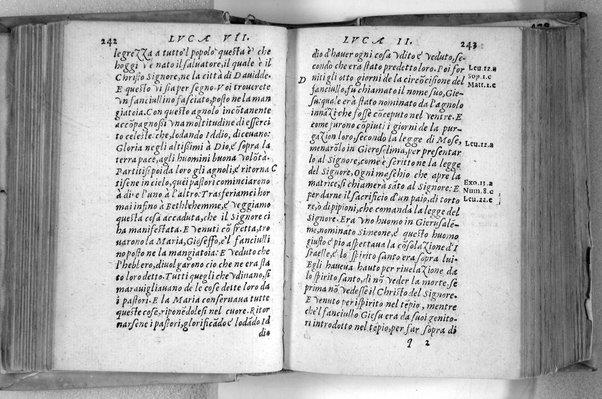 242 LVCAE VII.
legrezza a tutto'l popolo questa è che
hoggi v'e nato il saluatore, il quale è il
Christo Signore, ne la città di Dauidde.
E questo vi sia per segno. Voi trouerete
vn fanciullino fasciato, posto ne la man
giatoia. Con questo agnolo incōtanente
accōpagnossi vna moltitudine di esserci
to celeste che, lodando Iddio, diceuano:
Gloria negli altissimi à Dio, e sopra la
terra pace, agli huomini buona volōtà.
Partitisi poi da loro gli agnoli, e ritorna C
tisene in cielo, que i pastori cominciarono
à dire l'uno à l'altro: Trasferiamci hor
mai infino à Bethlehemme, e veggiamo
questa cosa accaduta, che il Signore ci
ha manifestata. E venuti cō fretta, tro
uarono la Maria, Gioseffo, e'l fanciulli
no posto ne la mangiatoia: E veduto che
l'hebbero, diuolgarono ciò che ne era sta
to loro detto. Tutti quegli che vdinano, si
marauigliauano de le cose dette loro da
i pastori. E la Maria conseruaua tutte
queste cose, ripōnēdolesi nel cuore. Ritor
narsene i pastori, glorificādo e lodādo Id
dio
LVCAE II. 243
dio d'hauer ogni cosa vdito e veduto, se-
condo che era stato predetto loro. Poi for Leu. 12. a
D niti gli otto giorni de la circōcisione del Sop. 1. c
fanciullo, fu chiamato il nome suo, Gie Matt. 1. c
su: quale era stato nominato da l'agnolo
innāzi che fosse cōceputo nel ventre. E
come furono cōpiuti i giorni de la pur-
gazion loro, secondo la legge di Mose, Leu. 12. a
menarōlo in Gierosolima, per presentar
lo al Signore, come è scritto ne la legge
del Signore. Ogni maschio che apre la Exo. 13. a
matrice, si chiamerà sāto al Signore: E Num. 8. c
per darne il sacrificio d'un paio, di torto Leu. 12. c
re, o di pipioni, che comanda la legge del
Signore. Era vno huomo in Gierusale-
mo, nominato Simeone, e questo huomo
giusto e pio aspettaua la cōsolazione d'I
sraelle, e lo spirito santo era sopra lui:
Egli haueua hauto per riuelazione da
lo spirito santo, di nō veder la morte, se
prima nō vedesse il Christo del Signore.
E venuto per ispirito nel tēpio, mentre
che'l fanciullo Giesu era da suoi genito-
ri introdotto nel tēpio, per far sopra di
q 2